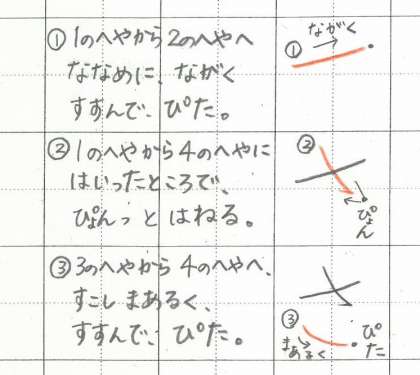 ①1のへやから2のへやへ
ななめに、ながく
すすんで、ぴた。
ながく
①
②1のへやから4のへやに
はいったところで、
ぴょんっとはねる。
②
ぴょん
③3のへやから4のへやへ、
すこしまあるく、
すすんで、ぴた。
③
まあるく
ぴた